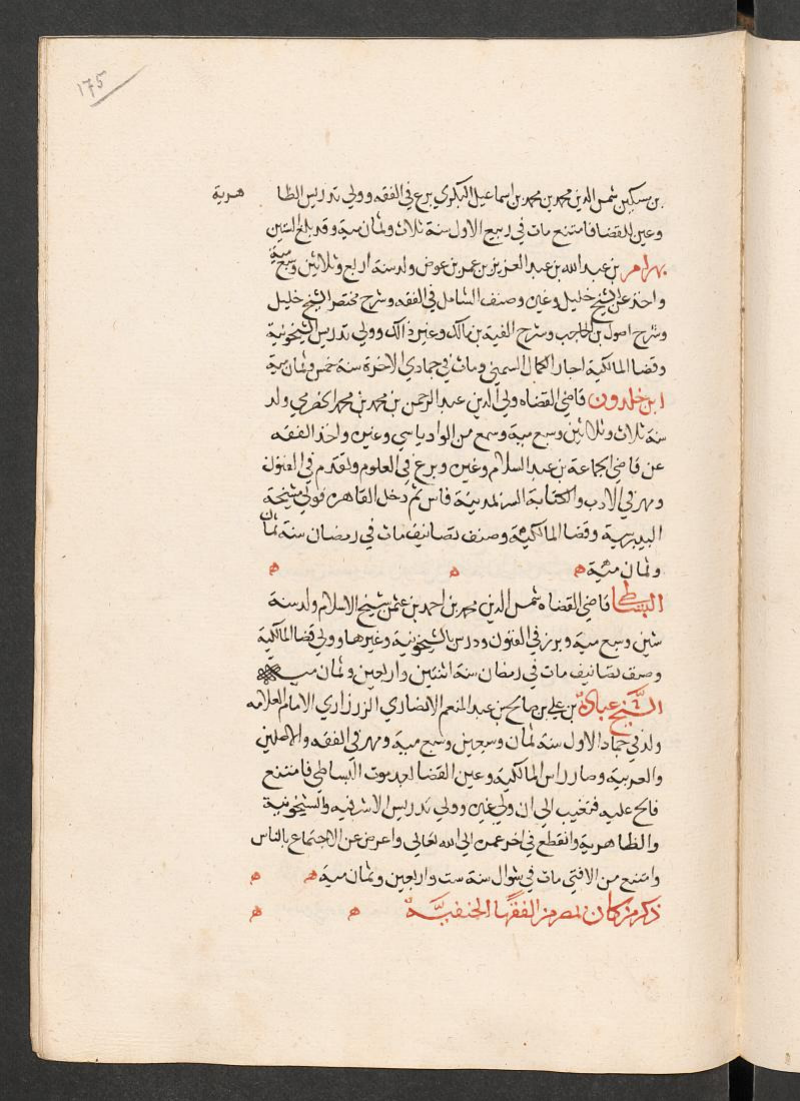 175
بن سكين شمس الدين محمد بن محمد بن اسماعيل البكري برع في الفقه وولي تدريس الظا هرية
وعين للقضا فامتنع مات في ربيع الاول سنة ثلاث وثمان مية وقد بلغ الستين
بهرام بن عبد الله بن عبد العزيز بن عمر بن عوض ولد سنة اربع وثلاثين وسبع مية
واخذ عن الشيخ خليل وغيره وصنف الشامل في الفقه وشرح مختصر الشيخ خليل
وشرح اصول بن الحاجب وشرح الفية بن مالك وغير ذالك وولي تدريس الشيخونية
وقضا المالكية اجاز الكمال الشمني ومات في جمادي الاخرة سنة خمس وثمان مية
ابن خلدون قاضي القضاه ولي الدين عبد الرحمن بن محمد بن محمد الحضرمي ولد
سنة ثلاث وثلاثين وسبع مية وسمع من الوادياسي وغيره واخذ الفقه
عن قاضي الجماعة بن عبد السلام وغيره وبرع في العلوم وتقدم في الفنون
ومهر في الادب والكتابة السر لمدينة فاس ثم دخل القاهرة فولي مشيخة
البيبرسية وقضا المالكية وصنف تصانيف مات في رمضان سنة ثمان
وثمان مئة ه ه ه
البساطي قاضي القضاه شمس الدين محمد بن احمد بن عثمن شيخ الاسلام ولد سنة
ستين وسبع مية وبرز في الفنون ودرس الشيخونية وغيرها وولي قضا المالكية
وصنف تصانيف مات في رمضان سنة اثنتين واربعين وثمان مية
الشيخ عبادة بن علي بن صالح بن عبد المنعم الانصاري الزرزاري الامام العلامه
ولد في جماد الاول سنة ثمان وسبعين وسبع مية ومهر في الفقه والاصلين
والعربية وصار راس المالكية وعين القضا لعد موت البساطي فامتنع
فالح عليه فتغيب الي ان ولي غيره وولي تدريس الاشرفيه والشيخونية
والظاهرية وانقطع في اخر عمره الي الله تعالي واعرض عن الاجتماع بالناس
وامتنع من الافتي مات في شوال سنة ست واربعين وثمان مية ه ه
ذكر من كان بمصر من الفقها الحنفية ه ه